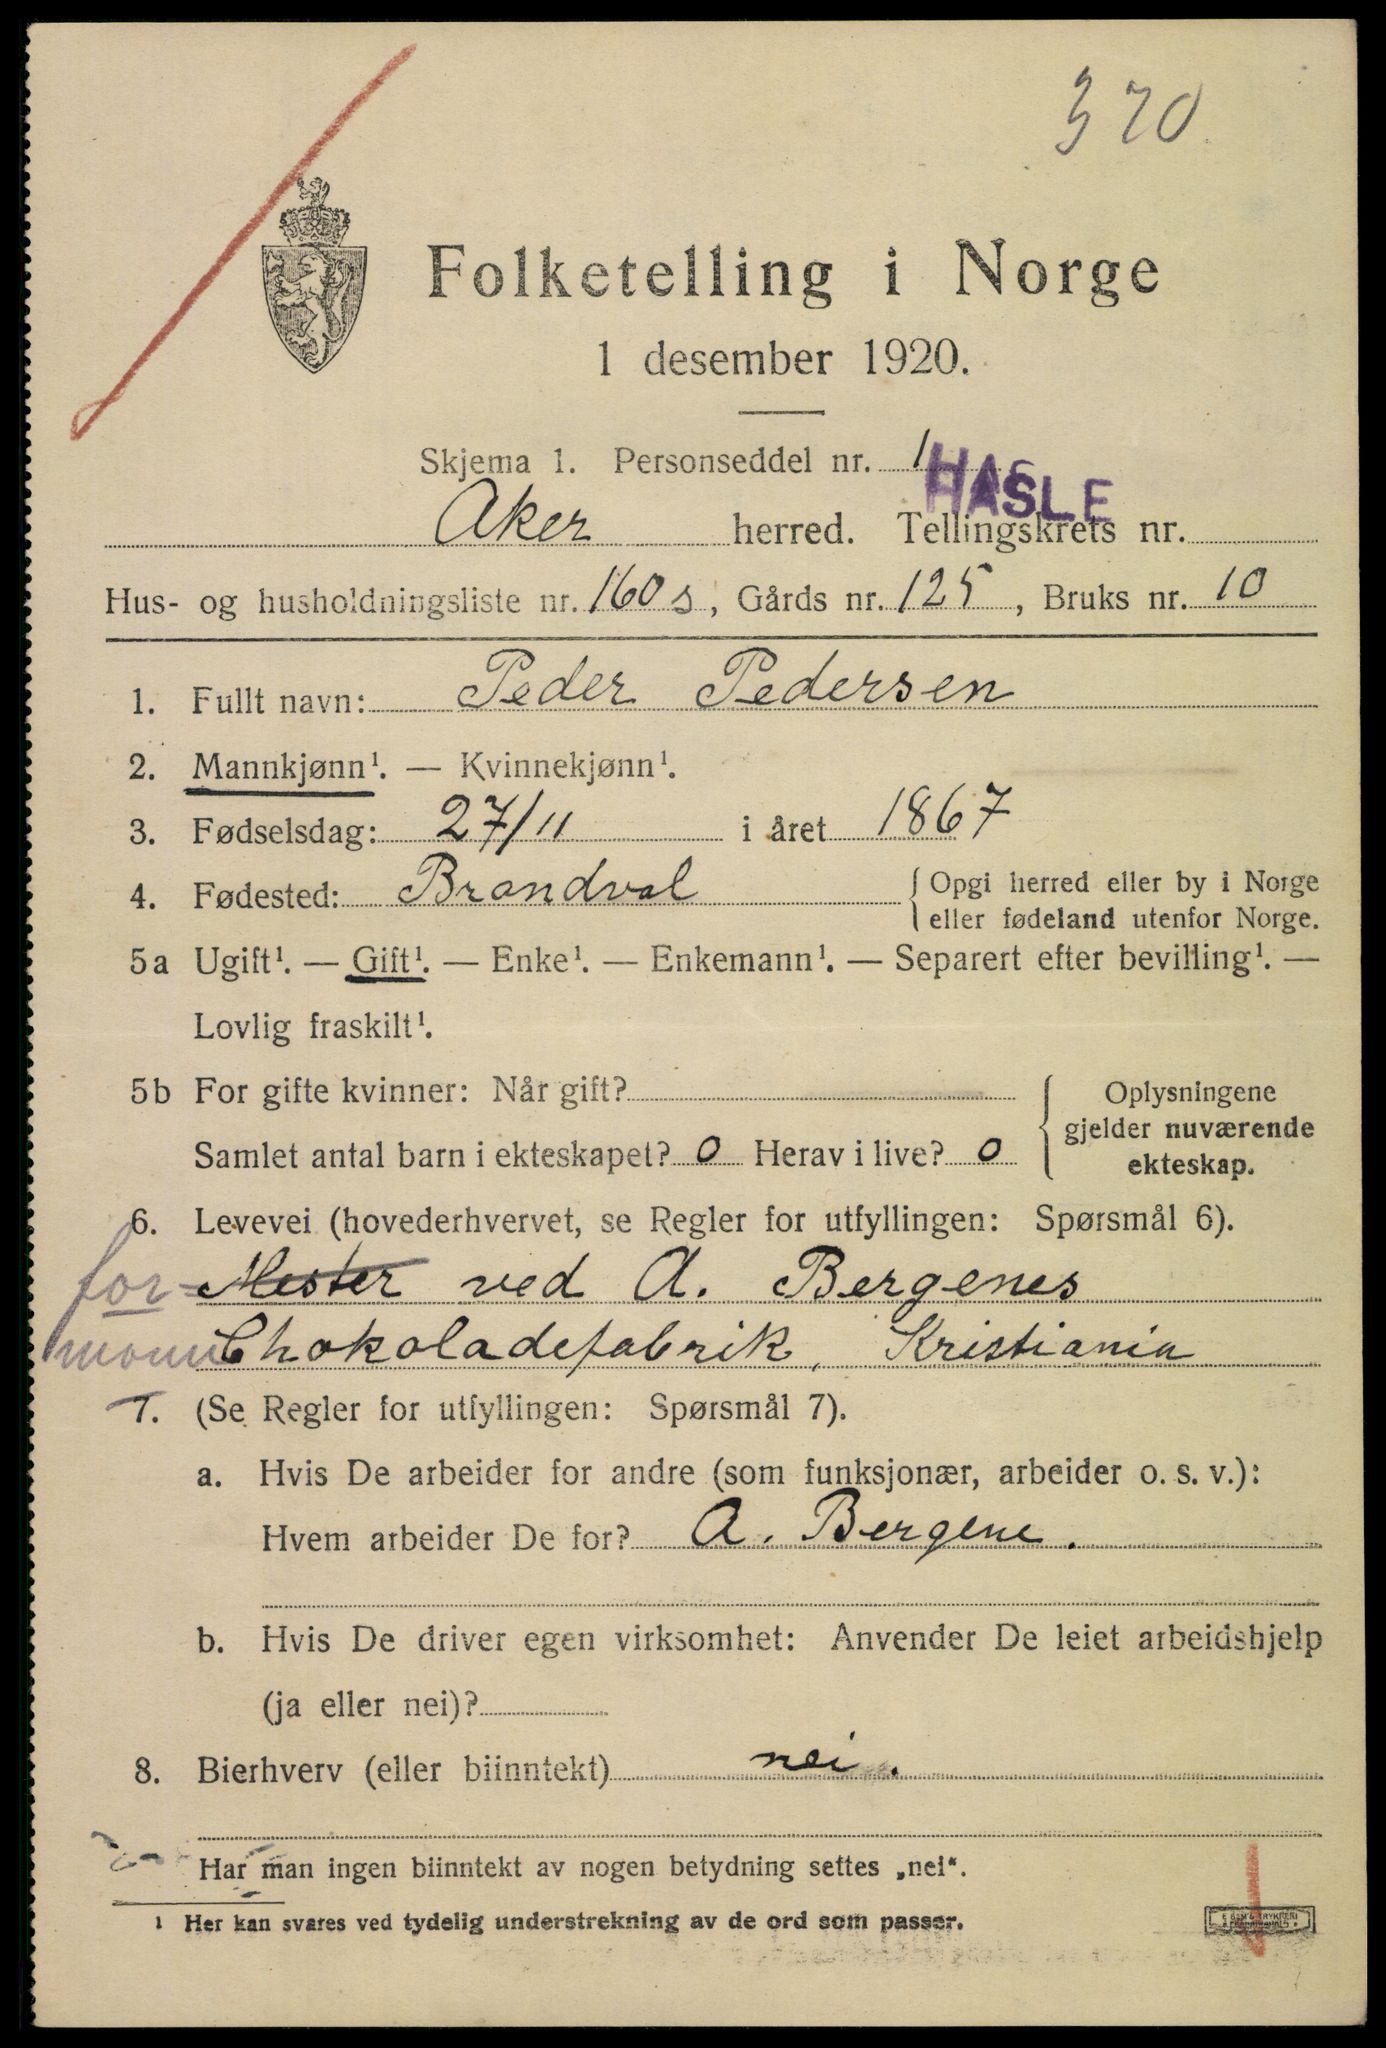 370
Folketelling i Norge
1 desember 1920.
Skjema 1. Personseddel nr. 1
HASLE
Aker herred. Tellingskrets nr.
Hus- og husholdningsliste nr. 160 s, Gårds nr. 125, Bruks nr. 10
1. Fullt navn: Peder Pedersen
2. Mannkjønn¹. — Kvinnekjønn¹.
3. Fødselsdag: 27/11 i året 1867
4. Fødested: Brandval { Opgi herred eller by i Norge
eller fødeland utenfor Norge.
5a Ugift¹. — Gift¹. — Enke¹. — Enkemann¹. — Separert efter bevilling¹. —
Lovlig fraskilt¹.
5b For gifte kvinner: Når gift? { Oplysningene
gjelder nuværende
Samlet antal barn i ekteskapet? 0 Herav i live? 0 ekteskap.
6. Levevei (hovederhvervet, se Regler for utfyllingen: Spørsmål 6).
for= Mester ved A. Bergenes
mann Chokoladefabrik, Kristiania
7. (Se Regler for utfyllingen: Spørsmål 7).
a. Hvis De arbeider for andre (som funksjonær, arbeider o. s. v.):
Hvem arbeider De for? A. Bergene.
b. Hvis De driver egen virksomhet: Anvender De leiet arbeidshjelp
(ja eller nei)?
8. Bierhverv (eller biinntekt) nei.
Har man ingen biinntekt av nogen betydning settes „nei“.
¹ Her kan svares ved tydelig understrekning av de ord som passer.